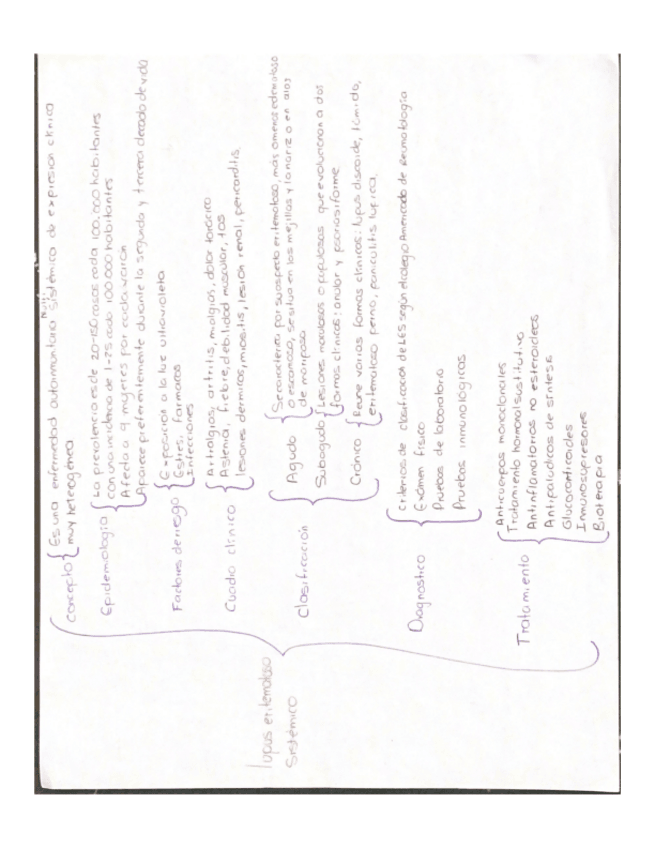 lupus eritematoso
Sistémico
concepto
Es una enfermedad autoinmunitaria sistémica de expresion clínica
muy heteogénea
Epidemiología
La prevalencia es de 20-150 casos cada 100,000 habitantes
con una incidencia de 1-25 cada 100 000 habitantes
Afecta a 9 mujeres por cada varón
Aparece preferentemente durante la segunda y tercera decada de vida
Factores de riesgo
Exposición a la luz ultravioleta
Estres, farmacos
Infecciones
Cuadro clínico
Artralgias, artritis, mialgias, dolor torácico
Astenia, fiebre, debilidad muscular, tos
lesiones dermicas, miositis, lesión renal, pericarditis.
Clasificación
Agudo
Se caracteriza por su aspecto eritematoso, más o menos edematoso
o escamoso, se situa en las mejillas y la nariz o en alas
de mariposa
Subagudo
Lesiones maculosas o papulosas que evolucionan a dos
formas clínicas: anular y psoriasiforme
Crónico
Reune varias formas clínicas: lupus discoide, túmido,
eritematoso pernio, paniculitis lupica.
Diagnostico
Criterios de clasificación de LES según el colegio Americado de Reumatología
Exámen físico
Pruebas de laboratorio
Pruebas innunológicas
Tratamiento
Anticuerpos monoclonales
Tratamiento hormonal sustitutivo
Antinflamatorios no esteroideos
Antipaludicos de síntesis
Glucocorticoides
Inmunosupresores
Bioterapia